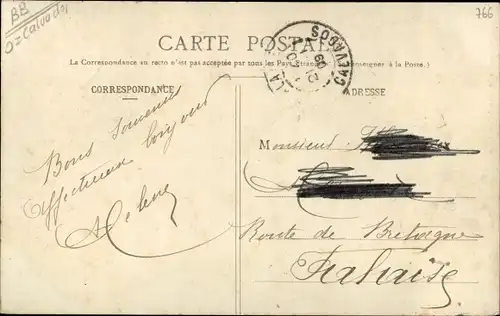 BB
766
CARTE POSTALE
La Correspondance au recto n'est pas acceptée par tous les Pays Étrangers (à la Poste.)
CALVADOS
CORRESPONDANCE
ADRESSE
Bons Souvenirs
Affectueux bonjour
Helene
Monsieur
Route de Bretagne
Falaise